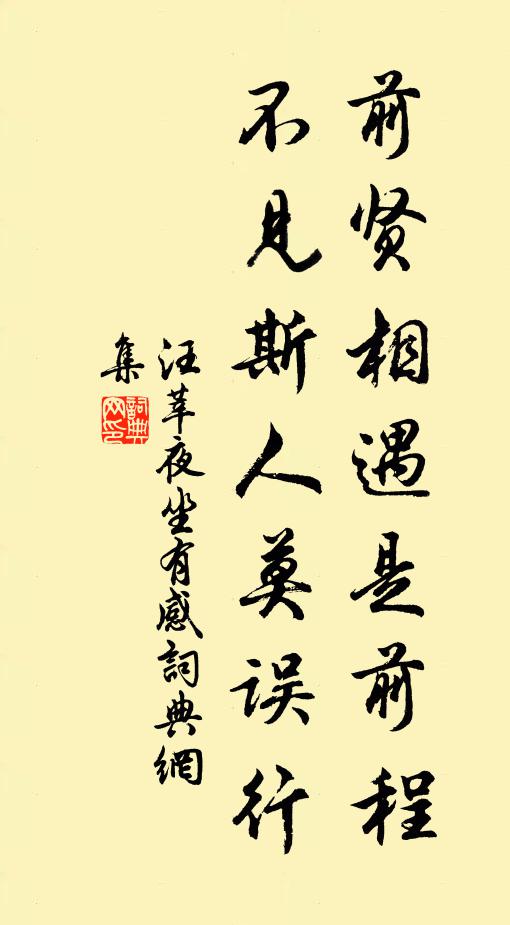 前贤相遇是前程
不见斯人莫误行
汪莘夜坐有感詞典網
集
詞典網印